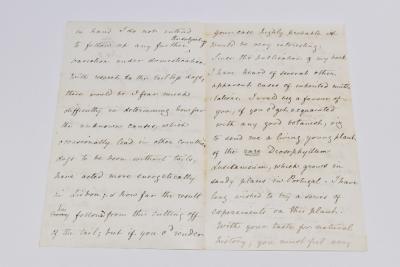 in hand I do not intend
the subject of
to follow up any further,
variation under domestication.
With respect to the tailless dogs,
there would be I fear much
difficulty in determining how far
the unknown causes, which
occasionally lead in other countries
dogs to be born without tails,
have acted more energetically
in Lisbon, & how far the result
has
followed from the cutting off
of the tails; but if you cd render
your case highly probable it
would be very interesting.
Since the publication of my book
I have heard of several other
apparent cases of inherited muti-
lations. I would beg a favour of
you, if you cd get acquainted
with any good botanist, viz
to send me a living young plant
of the rare Drosophyllum
Lusitanicum, which grows in
sandy places in Portugal. I have
long wished to try a series of
experiments on this plant.
With your taste for natural
history, you must feel very